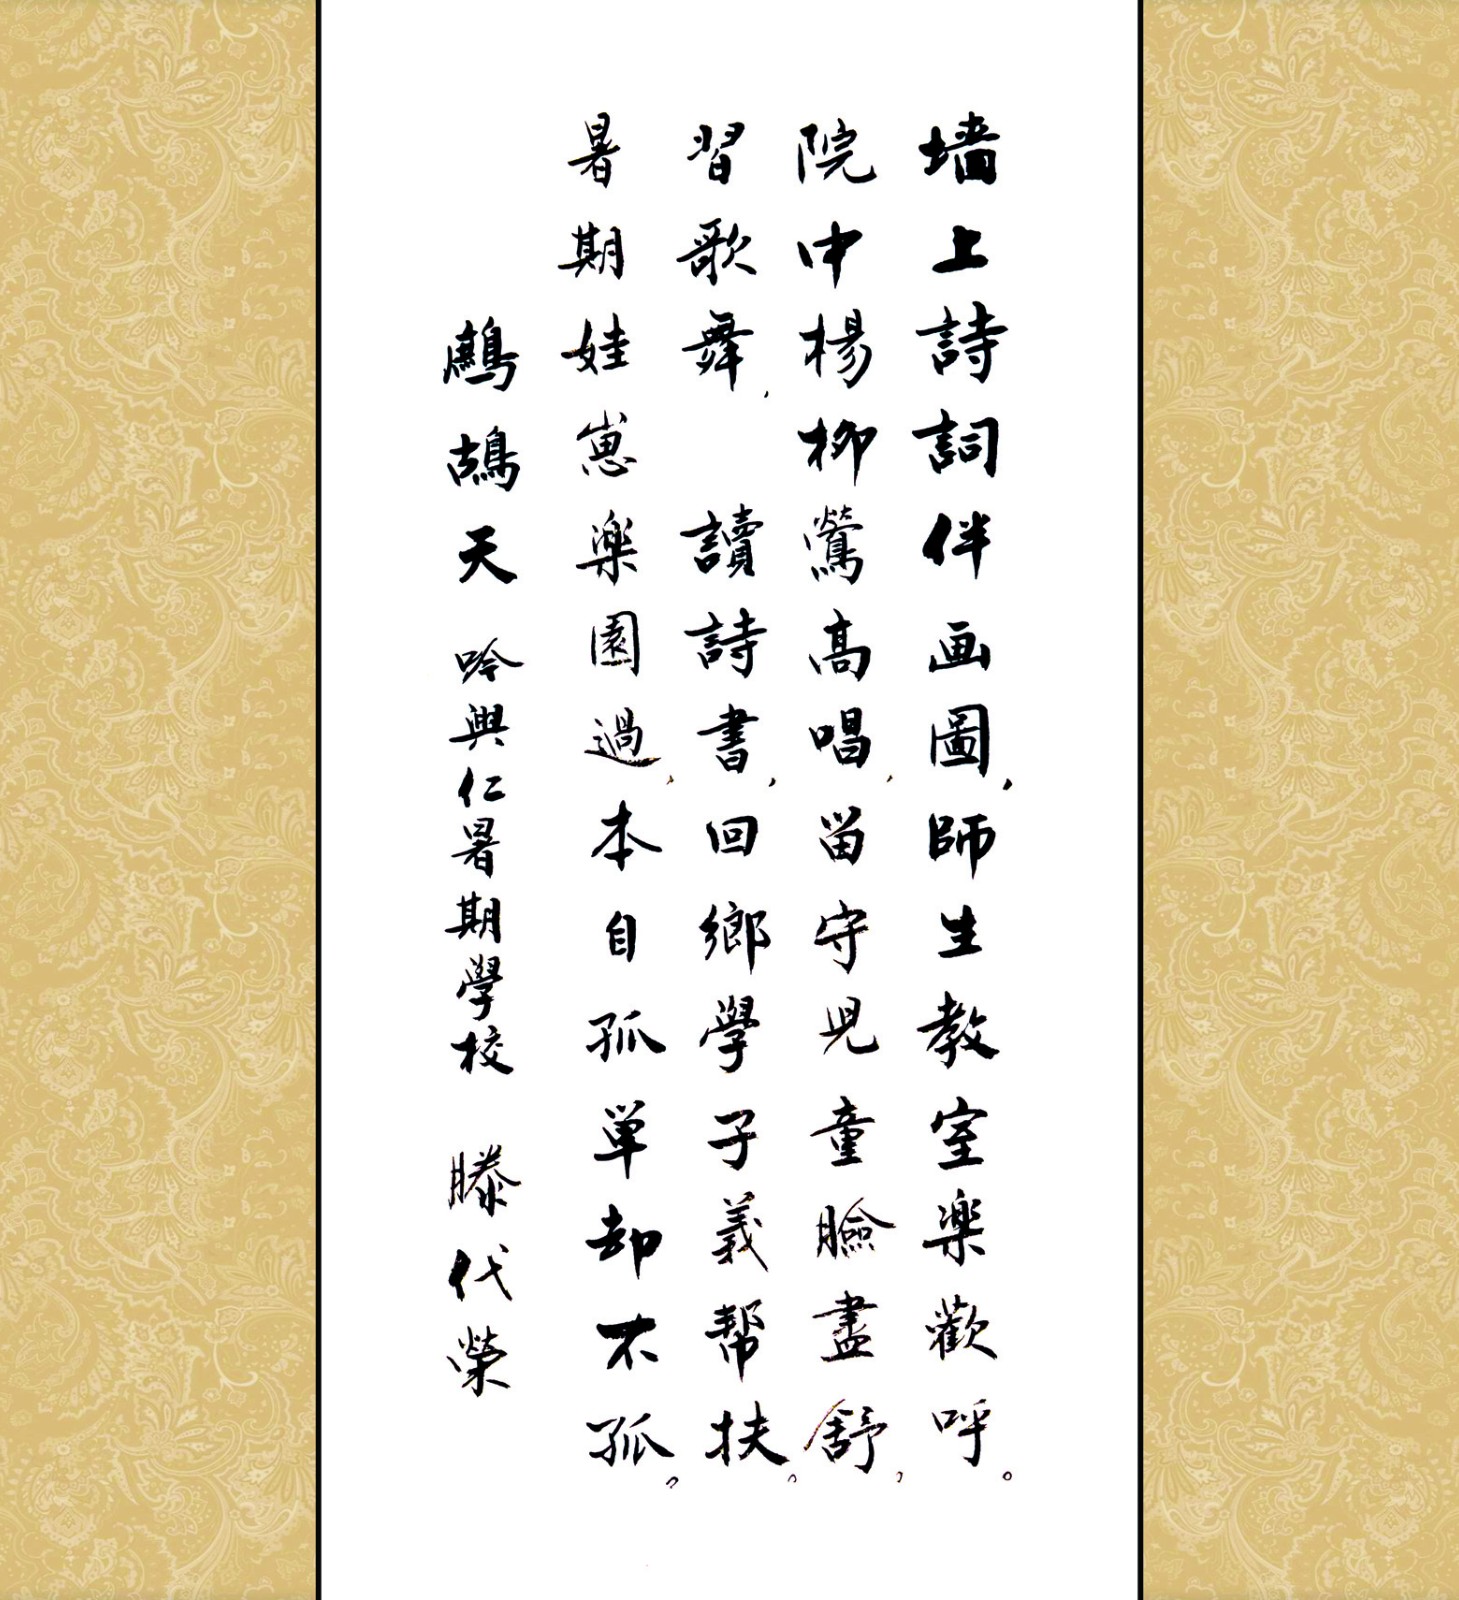 墙上詩詞伴画圖，師生教室楽歡呼。
院中楊柳鶯高唱，留守児童臉盡舒，
習歌舞，讀詩書，回鄉學子義幫扶。
暑期娃崽楽園過，本自孤单却不孤。
鷓鴣天 吟興仁暑期學校 滕代榮